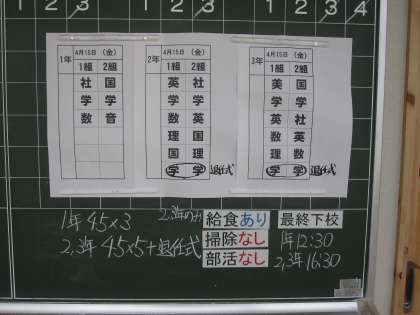 1 2 3
1 2 3
1 2 3 4
1年
4月15日 (金)
1組 2組
社 国
学 学
数 音
2年
4月15日 (金)
1組 2組
英 社
学 学
数 英
理 国
国 理
学 学 退任式
3年
4月15日 (金)
1組 2組
美 国
学 学
英 社
数 英
理 数
学 学 退任式
1年 45×3
2,3年 45×5+退任式
2,3年のみ
給食あり
掃除なし
部活なし
最終下校
1年 12:30
2,3年 16:30